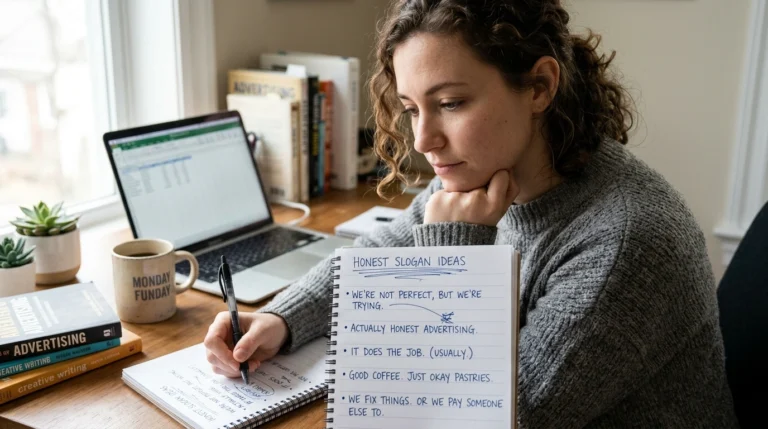 ADVERTISING
MONDAY
FUNDAY
ADVERTISING
CREATIVE WRITING
creative writing
HONEST SLOGAN IDEAS
• WE'RE NOT PERFECT, BUT WE'RE
TRYING.
• ACTUALLY HONEST ADVERTISING.
• IT DOES THE JOB. (USUALLY)
• GOOD COFFEE. JUST OKAY PASTRIES
• WE FIX THINGS. OR WE PAY SOMEONE
ELSE TO.